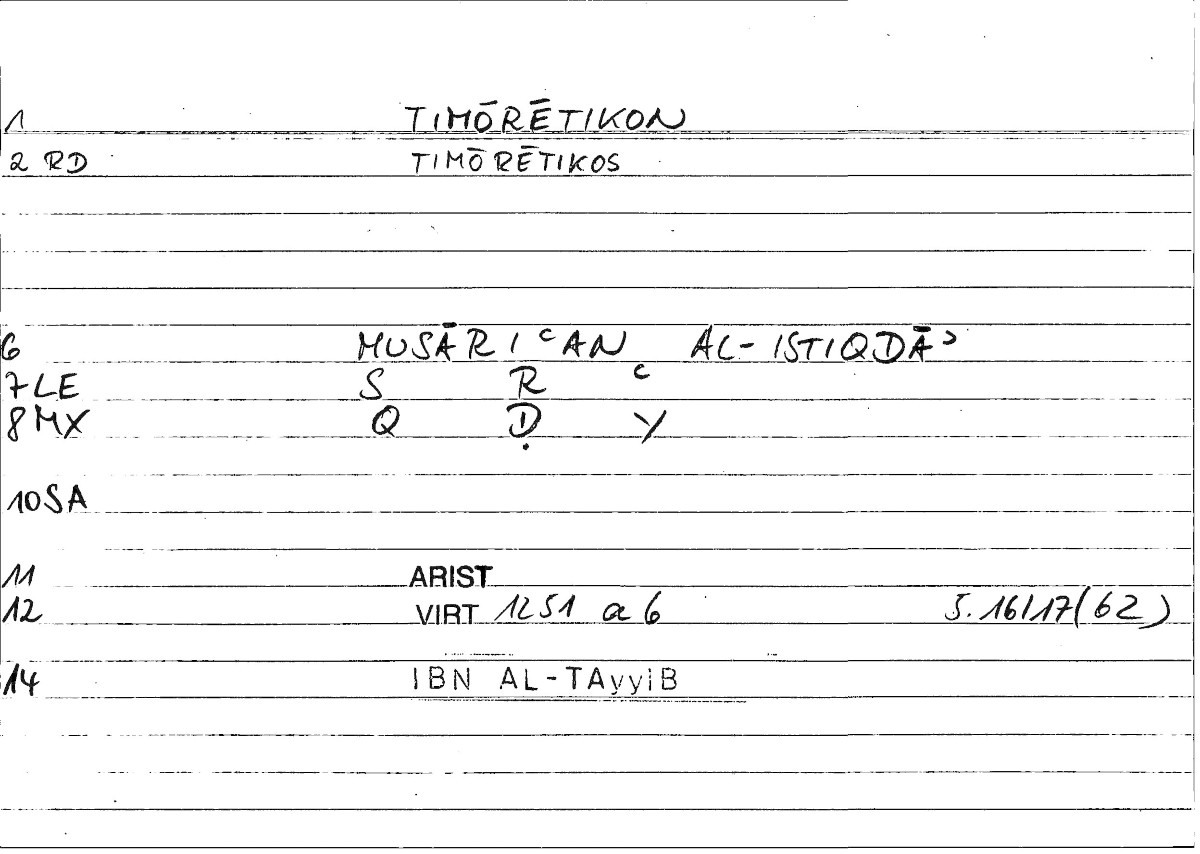 1 TIMŌRĒTIKON
2 RD TIMŌRĒTIKOS
6 MUSĀRIʿAN AL-ISTIQDĀʾ
7 LE S R ʿ
8 MX Q Ḍ Y
10 SA
11 ARIST
12 VIRT 1251 a 6 5.16/17(62)
14 IBN AL-TAyyiB